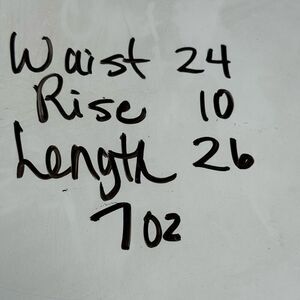 Waist 24
Rise 10
Length 26
7oz